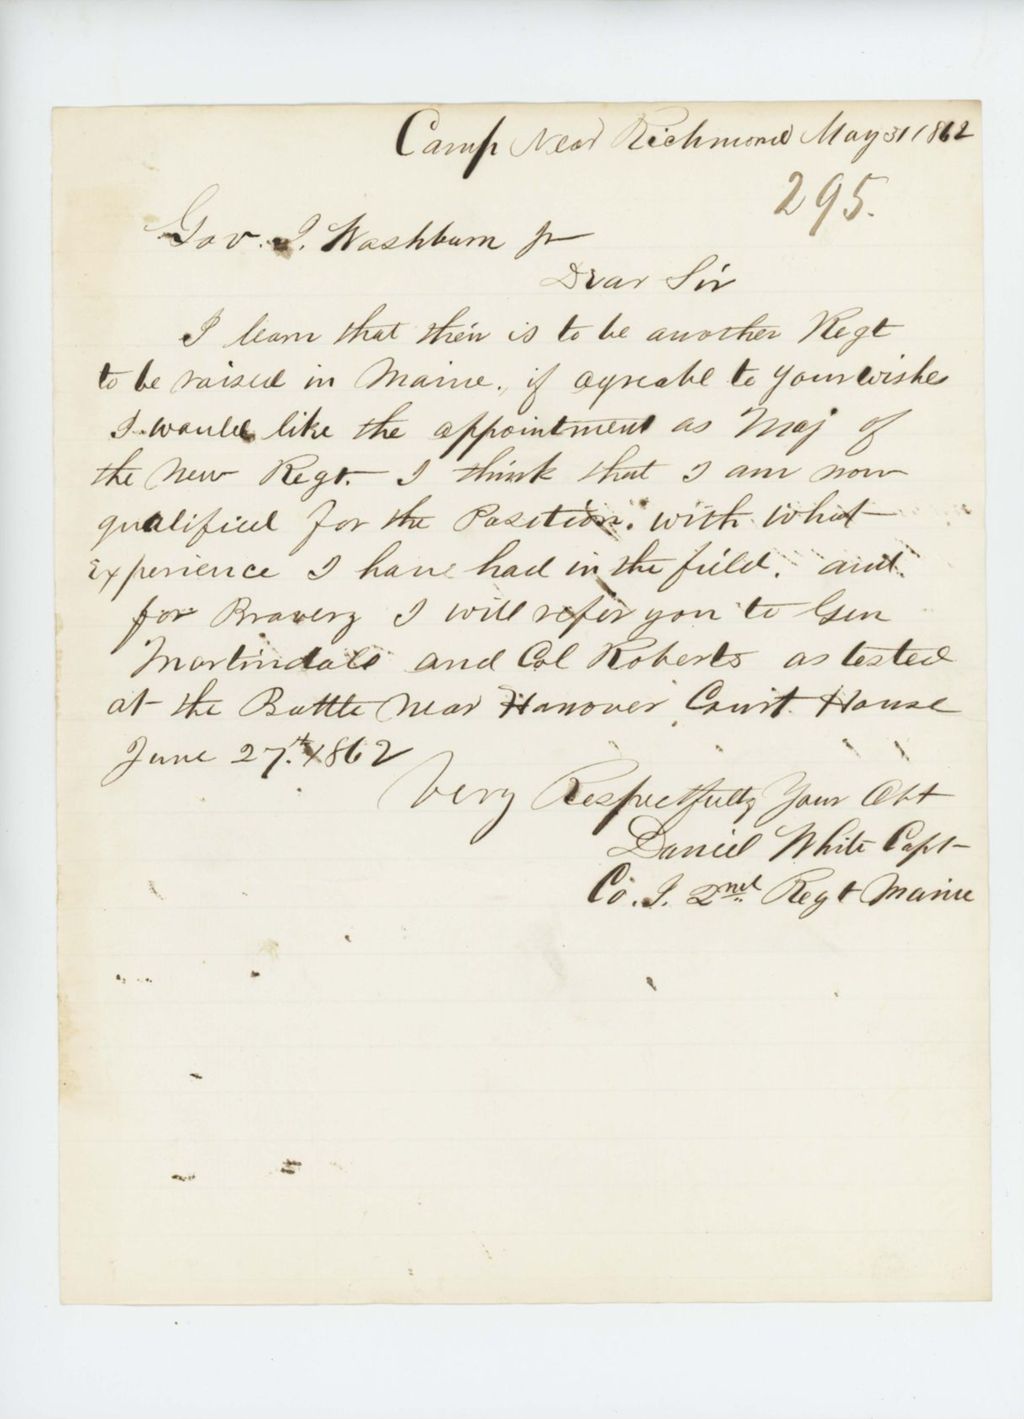 Camp Near Richmond May 31 1862
295.
Gov. I. Washburn Jr
Dear Sir
I learn that their is to be another Regt
to be raised in Maine., if agreabl to your wishes
I would like the appointment as Maj of
the New Regt. I think that I am now
qualified for the Position. with what
Experience I have had in the field. and
for Bravery I will refer you to Gen
Martindale and Col Roberts as tested
at the Battle Near Hanover Court House
June 27.th 1862
Very Respectfully Your Obt
Daniel White Capt
Co. I. 2nd Regt Maine